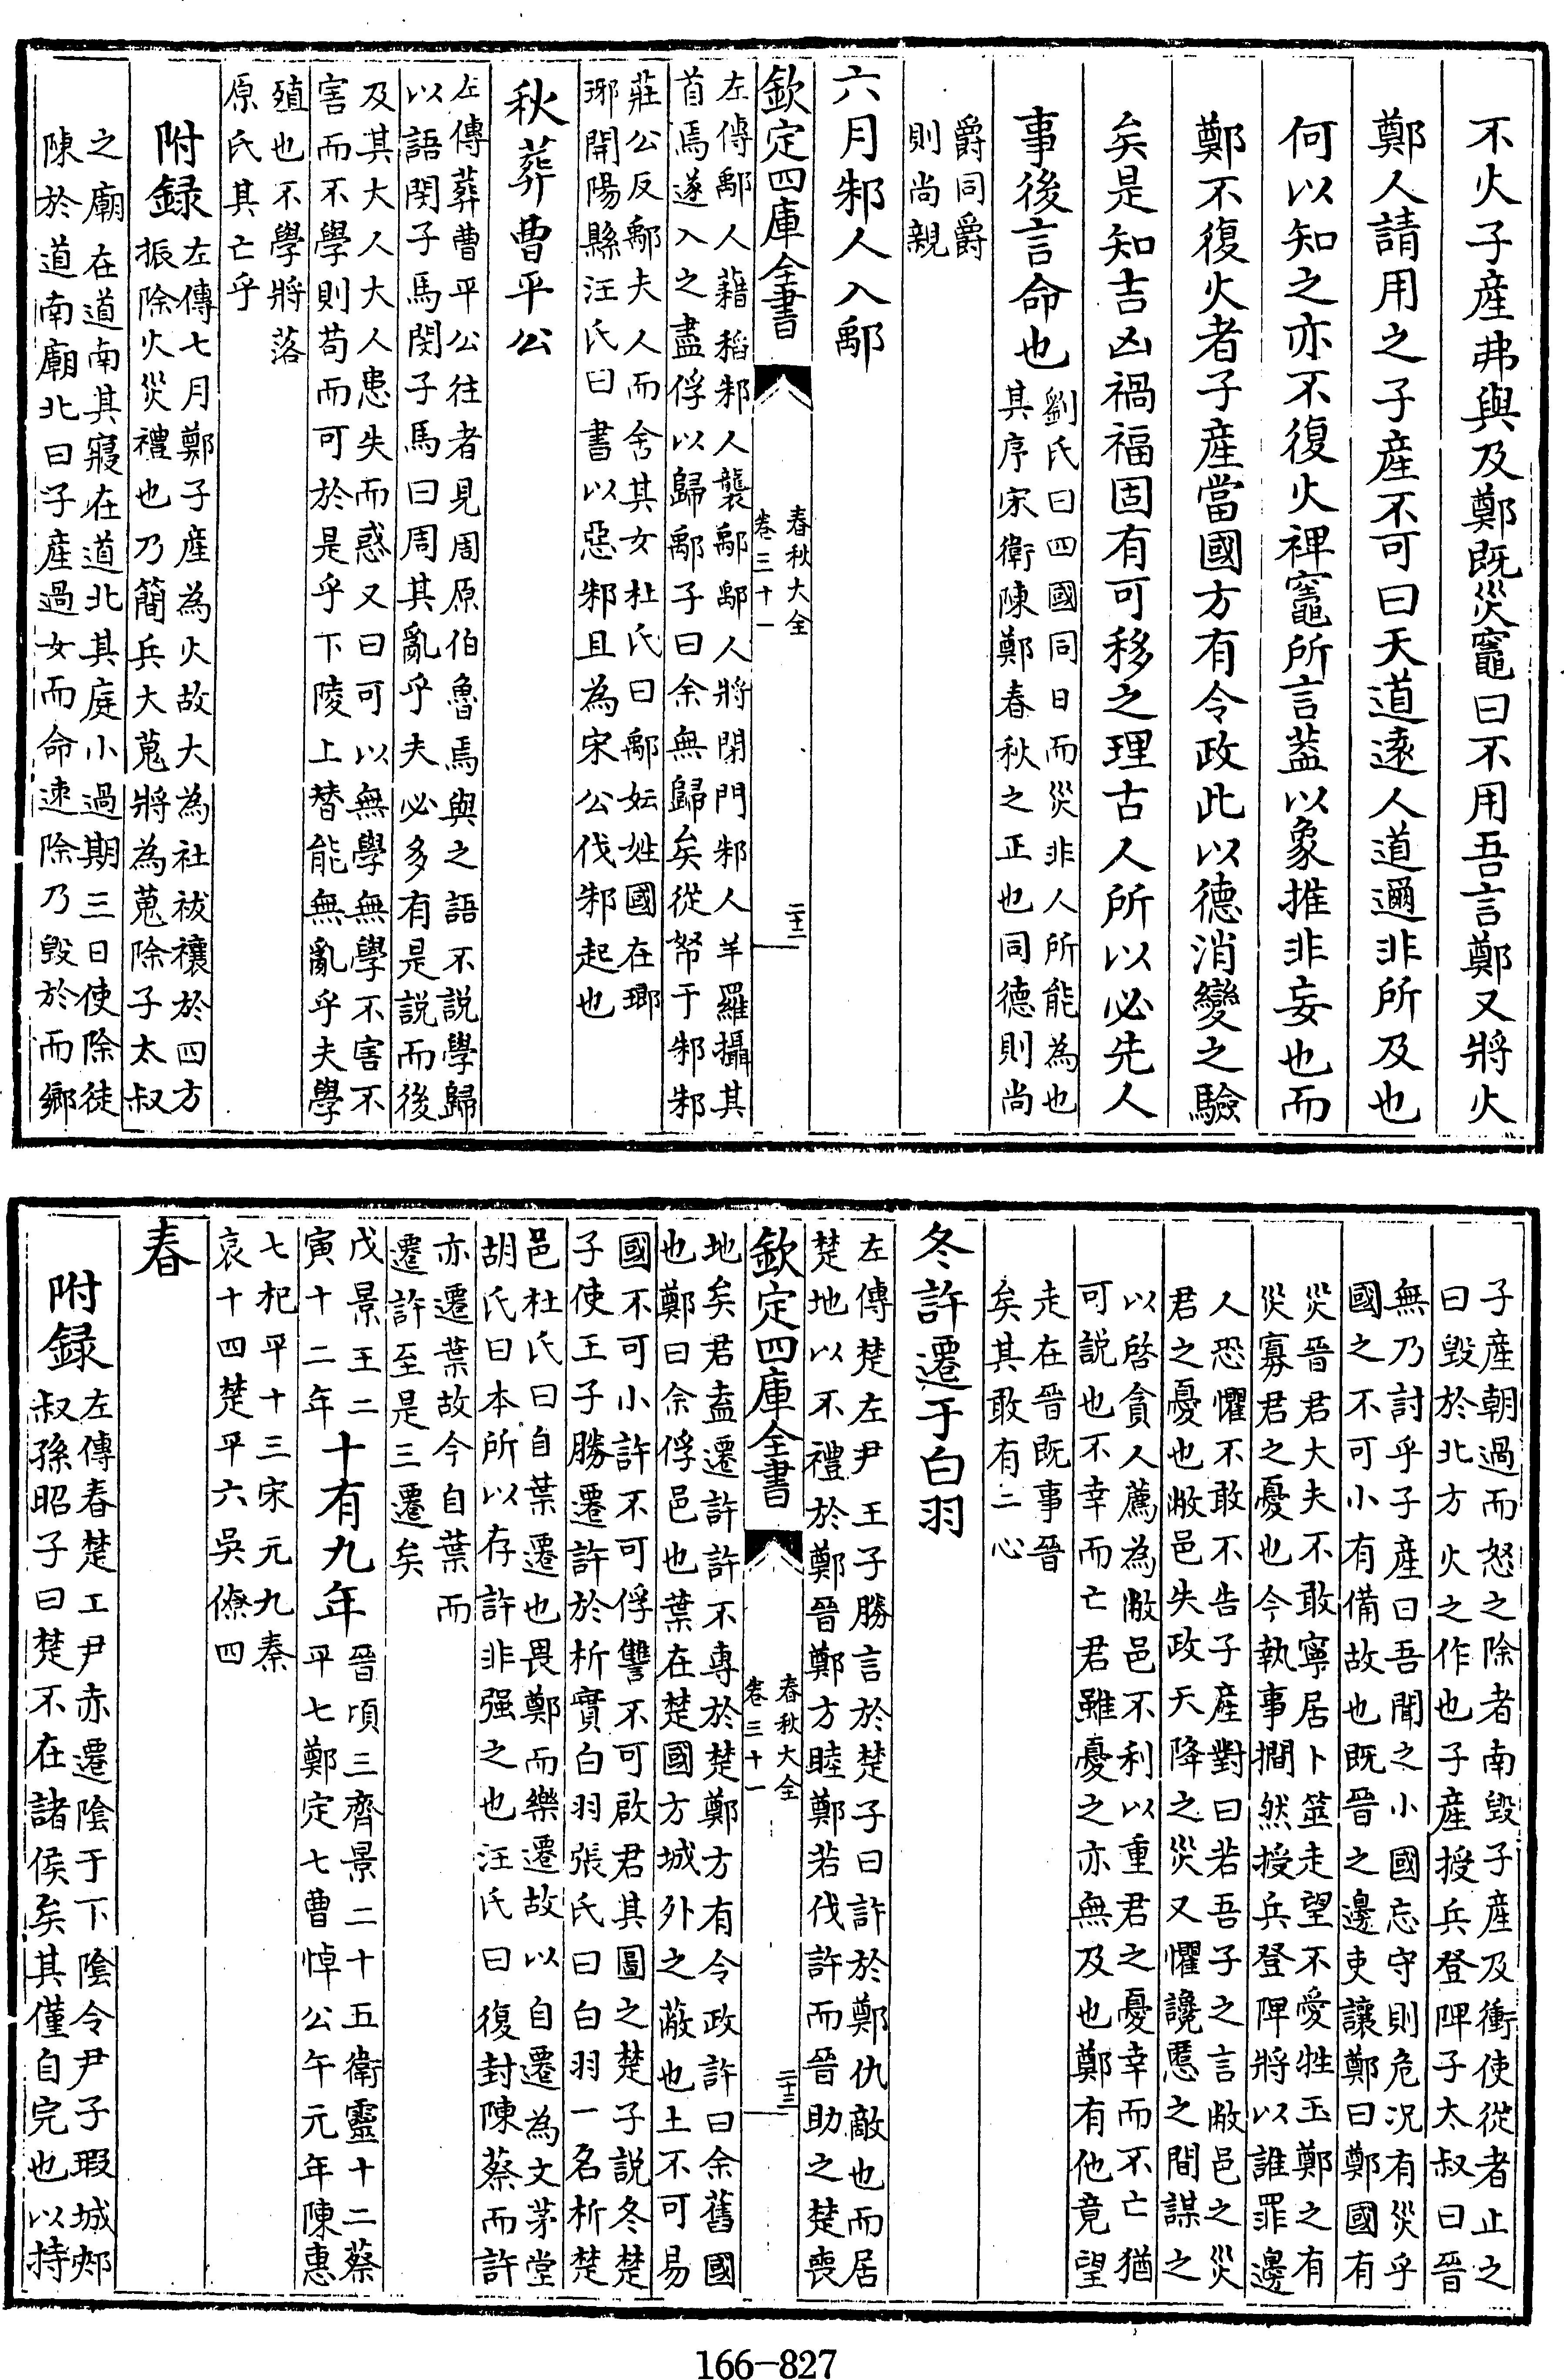 不火子産弗與及鄭既災竈曰不用吾言鄭又將火
鄭人請用之子產不可曰天道遠人道邇非所及也
何以知之亦不復火裨竈所言葢以象推非妄也而
鄭不復火者子產當國方有令政此以德消變之驗
矣是知吉凶禍福固有可移之理古人所以必先人
事後言命也劉氏曰四國同日而災非人所能為也
其序宋衛陳鄭春秋之正也同德則尚
爵同爵
則尚親
六月邾人入鄅
欽定四庫全書
春秋大全
卷三十一
二十二
左傳鄅人藉稻邾人襲鄅鄅人將閉門邾人羊羅攝其
首焉遂入之盡俘以歸鄅子曰余無歸矣從帑于邾邾
莊公反鄅夫人而舍其女杜氏曰鄅妘姓國在瑯
琊開陽縣汪氏曰書以惡邾且為宋公伐邾起也
秋葬曹平公
左傳葬曹平公往者見周原伯魯焉與之語不說學歸
以語閔子馬閔子馬曰周其亂乎夫必多有是説而後
及其大人大人患失而惑又曰可以無學無學不害不
害而不學則苟而可於是乎下陵上替能無亂乎夫學
殖也不學將落
原氏其亡乎
附録左傳七月鄭子産為火故大為社祓禳於四方
振除火災禮也乃簡兵大蒐將為蒐除子太叔
之廟在道南其寢在道北其庭小過期三日使除徒
陳於道南廟北曰子産過女而命速除乃毀於而鄉
子産朝過而怒之除者南毀子産及衝使從者止之
曰毀於北方火之作也子産授兵登陴子太叔曰晉
無乃討乎子産曰吾聞之小國忘守則危况有災乎
國之不可小有備故也既晉之邊吏讓鄭曰鄭國有
災晉君大夫不敢寧居卜筮走望不愛牲玉鄭之有
災寡君之憂也今執事撊然授兵登陴將以誰罪邊
人恐懼不敢不告子產對曰若吾子之言敝邑之災
君之憂也敝邑失政天降之災又懼讒慝之間謀之
以啓貪人薦為敝邑不利以重君之憂幸而不亡猶
可説也不幸而亡君雖憂之亦無及也鄭有他竟望
走在晉既事晉
矣其敢有二心
冬許遷于白羽
左傳楚左尹王子勝言於楚子曰許於鄭仇敵也而居
楚地以不禮於鄭晉鄭方睦鄭若伐許而晉助之楚喪
欽定四庫全書
春秋大全
卷三十一
二十三
地矣君盍遷許許不專於楚鄭方有令政許曰余舊國
也鄭曰余俘邑也葉在楚國方城外之蔽也土不可易
國不可小許不可俘讐不可啟君其圖之楚子説冬楚
子使王子勝遷許於析實白羽張氏曰白羽一名析楚
邑杜氏曰自葉遷也畏鄭而樂遷故以自遷為文茅堂
胡氏曰本所以存許非强之也汪氏曰復封陳蔡而許
亦遷葉故今自葉而
遷許至是三遷矣
戊景王二
寅十二年十有九年晉頃三齊景二十五衛靈十二蔡
平七鄭定七曹悼公午元年陳惠
七杞平十三宋元九秦
哀十四楚平六吳僚四
春
附録左傳春楚工尹赤遷陰于下陰令尹子瑕城郟
叔孫昭子曰楚不在諸侯矣其僅自完也以持
166-827